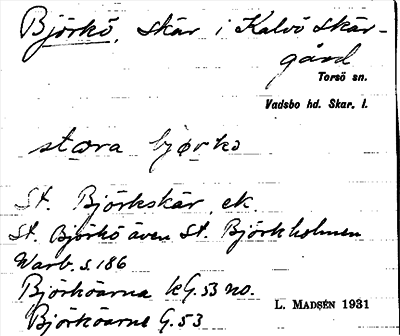 Björkö, skär i Kalvö skär-
gård
Torsö sn.
Vadsbo hd. Skar. l.
stora björkö
St. Björkskär, ek
St. Björkö även St. Björkholmen
Warb. s. 186
Björköarna kG. 53 no.
L. MADSÉN 1931
Björköarne G. 53